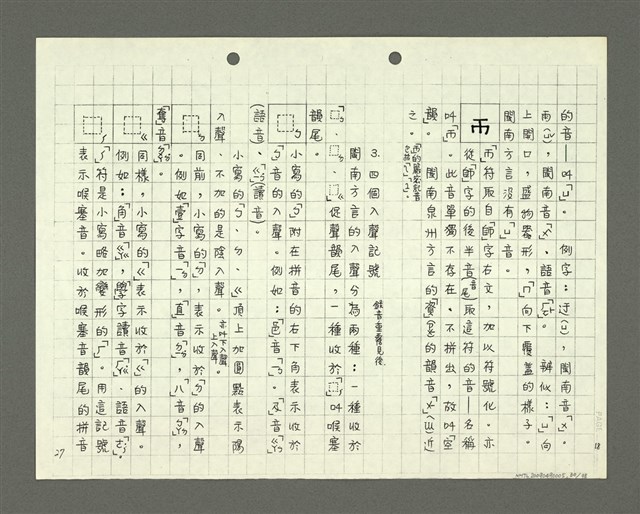 的音—叫「ㄩ」。例字：迂(ㄩ)，閩南音「ㄨ」、
雨(ㄩˇ)，閩南音「ㄨ」、語音「」。辨似：「ㄩ」向
上開口，盛物器形，「冂」向下覆蓋的樣子。
閩南方言沒有「ㄩ」音。
「帀」符取自「師」字右文，加以符號化。亦
從「師」字的後半音(音尾)取這符的音—名稱
叫「帀」。此音單獨不存在、不拼出，故叫「空
韻」。閩南泉州方言的「資」「思」的韻音「ㄨ」(ㄩ)近
之。
3. 四個入聲記號
錄音重覆見後
閩南方言的入聲分為兩種：一種收於
促聲韻尾，一種收於叫喉塞
韻尾。
ㄅ小寫的「ㄅ」附在拼音的右下角表示收於
「ㄅ」音的入聲。例如：「邑」音「」。「及」音「
語音)、「」讀音)。
小寫的ㄅ、ㄉ、ㄍ頂上加圓點表示陽
入聲、不加的是陰入聲。
亦叫下入聲、上入聲。
同前，小寫的「ㄉ」，表示收於「ㄉ」的入聲
。例如「壹」字音「」，「直」音「」，「八」音「」，
「奪」音「」。
ㄍ同樣，小寫的「ㄍ」表示收於「ㄍ」的入聲。
例如：「角」音「」，「學」字讀音「」、語音「」。
符是小寫略加變形的「」。用這記號
表示喉塞音。收於喉塞音韻尾的拼音
18
27